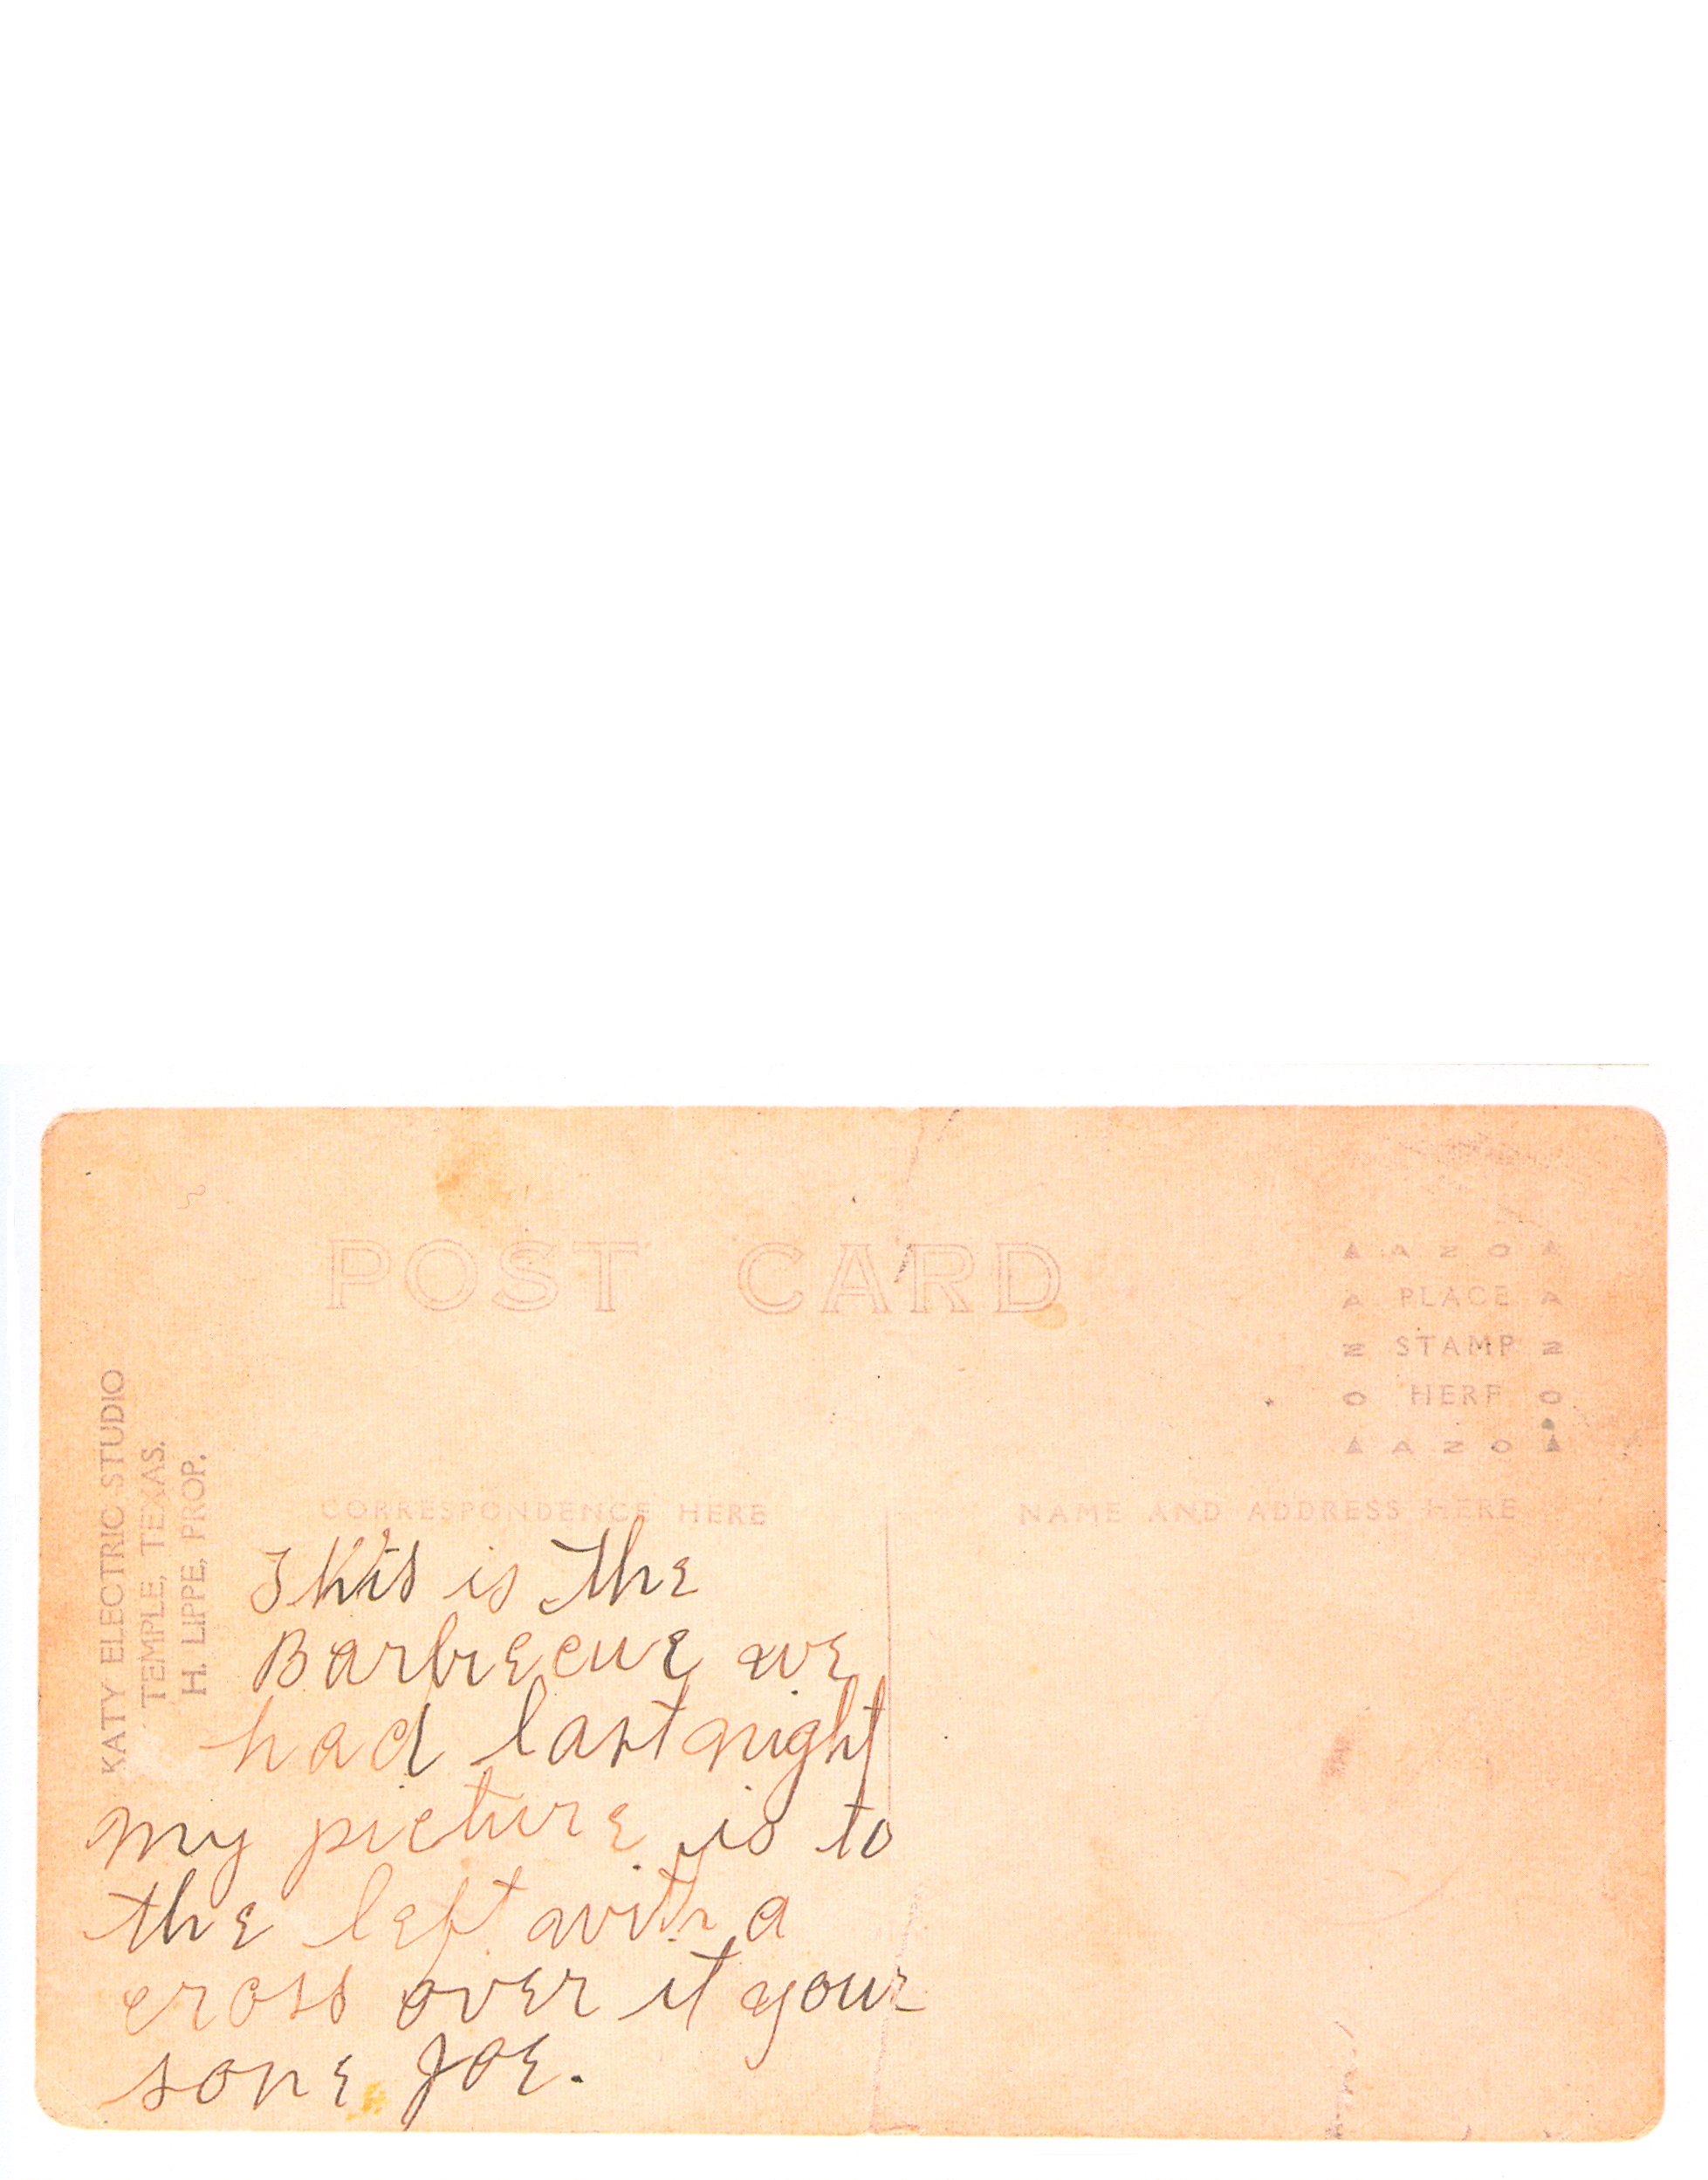 POST CARD
▲ A Z O ▲
A PLACE A
Z STAMP Z
O HERE O
▲ A Z O ▲
KATY ELECTRIC STUDIO
TEMPLE, TEXAS.
H. LIPPE, PROP.
CORRESPONDENCE HERE
NAME AND ADDRESS HERE
This is the
Barbecue we
had last night
My picture is to
the left with a
cross over it your
sone Joe.